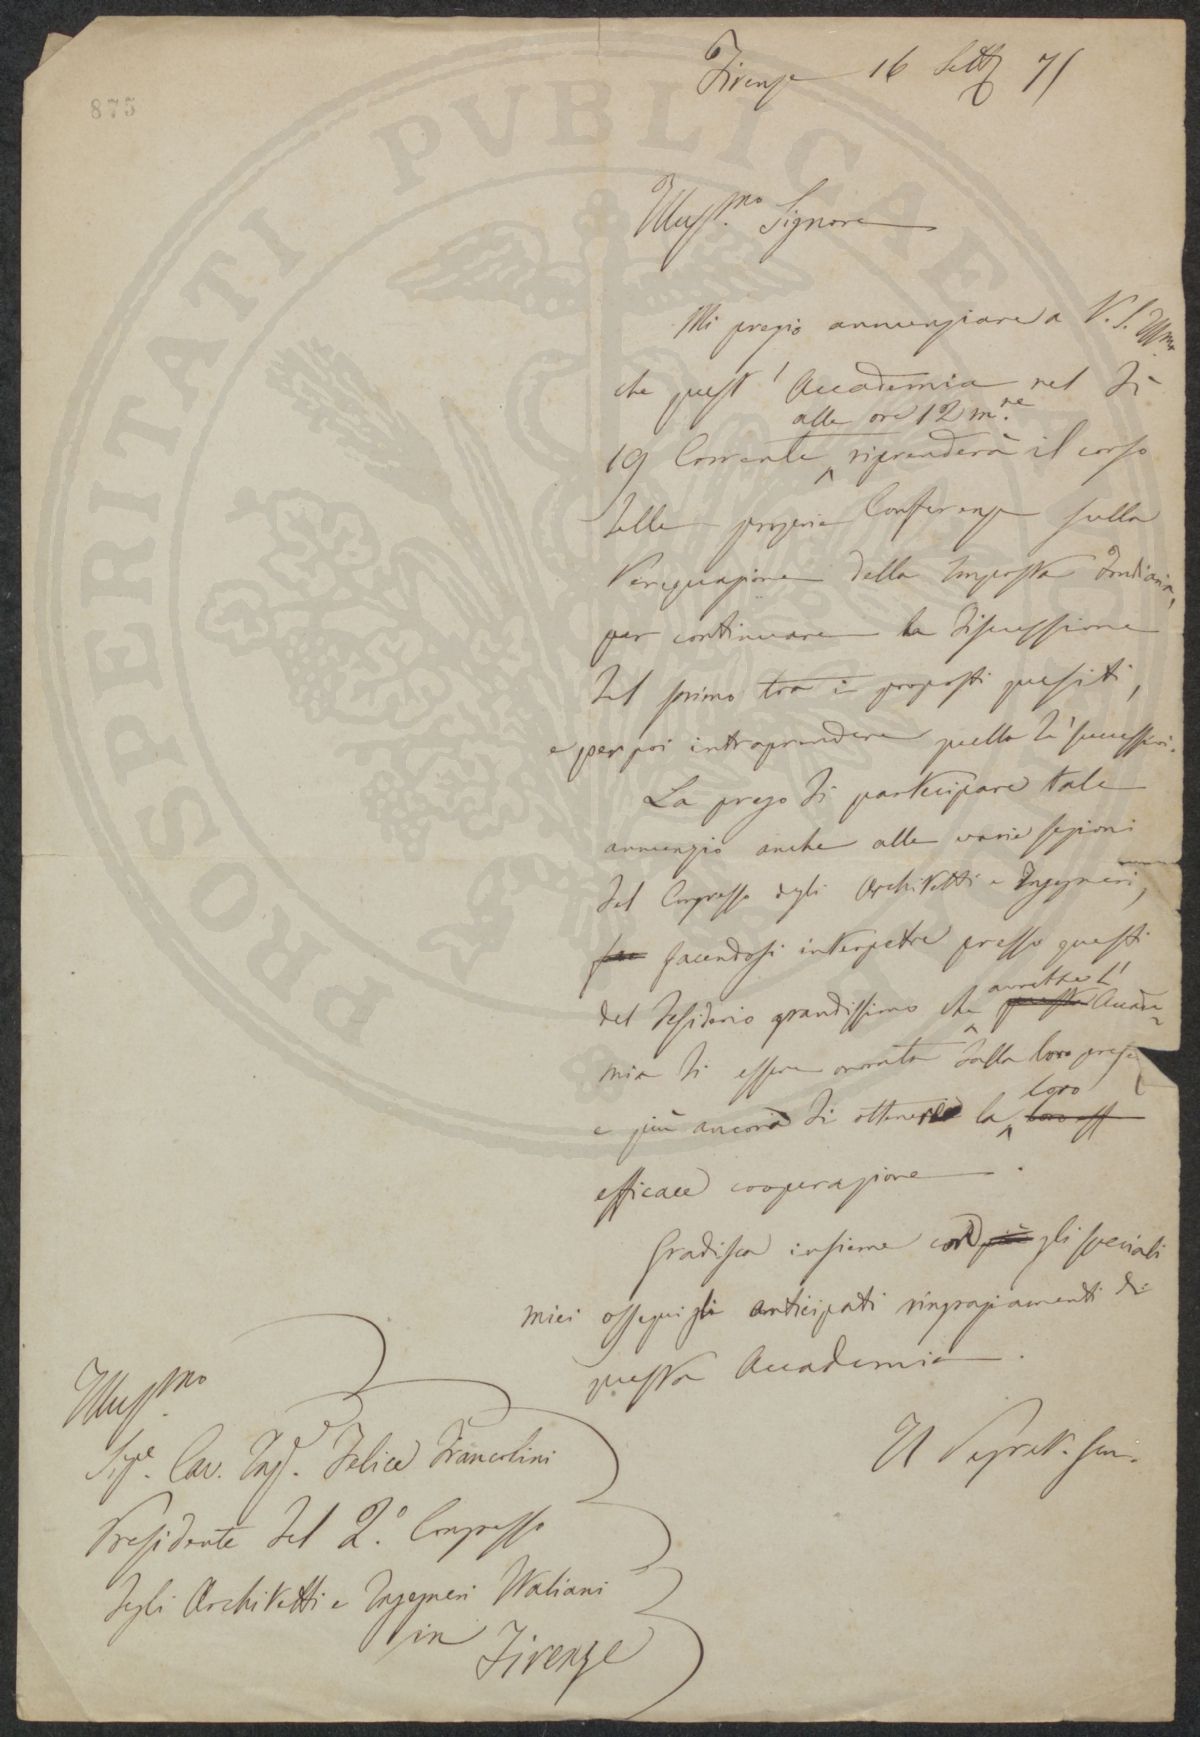 875
Firenze 16 Settb 75
Illustr.mo Signore
Mi pregio annunziare a V. S. Illma
che quest'Accademia nel dì
alle ore 12 m.ne
19 Corrente riprenderà il corso
delle proprie Conferenze sulla
Perequazione della Imposta Fondiaria,
per continuare la discussione
del primo tra i proposti quesiti,
e per poi intraprendere quella de' successivi.
La prego di partecipare tale
annunzio anche alle varie sezioni
del Congresso degli Architetti e Ingegneri,
facendosi interpetre presso questi
del desiderio grandissimo che avrebbe l'
questa Accade-
mia di essere onorata dalla loro prese
e più ancora di ottenere la loro
loro eff
efficace cooperazione.
Gradisca insieme con più gli speciali
miei ossequi gli anticipati ringraziamenti di
questa Accademia.
Il Segret. Gen.
Illustr.mo
Sig.e Cav. Ing.e Felice Francolini
Presidente del 2.o Congresso
degli Architetti e Ingegneri Italiani
in Firenze
PROSPERITATI PVBLICAE